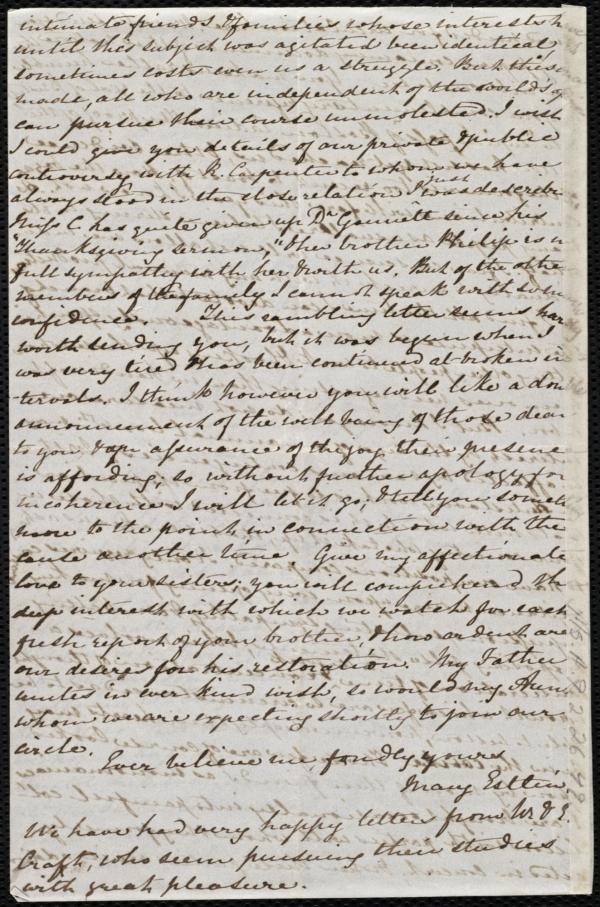 intimate friends & families whose interests h
until this subject was agitated been identical,
sometimes costs even us a struggle. But this
made, all who are independent of the world's op
can pursue their course unmolested. I wish
I could give you details of our private & public
controversy with R. Carpenter to whom we have
always stood in the close relation I just was describi
Miss C has quite given up Dr Gannett since his
"Thanksgiving sermon," & her brother Philip is in
full sympathy with her & with us. But of the othe
members of the family I cannot speak with som
confidence. This rambling letter seems har
worth sending you, but it was begun when I
was very tired & has been continued at broken in
-tervals. I think however you will like a dou
announcement of the well being of those dear
to you & an assurance of the joy their presence
is affording, so without further apology for
incoherence I will let it go, & tell you somet
more to the point in connection with the
cause another time. Give my affectionate
love to your sisters; you will comprehend th
deep interest with which we watch for each
fresh report of your brother, & how ardent are
our desires for his restoration. My Father
unites in ever kind wish, so would my Aun
whom we are expecting shortly to join our
circle.
Ever believe me fondly yours
Mary Estlin.
We have had very happy letter from W. & E.
Craft, who seem pursuing their studies
with great pleasure.